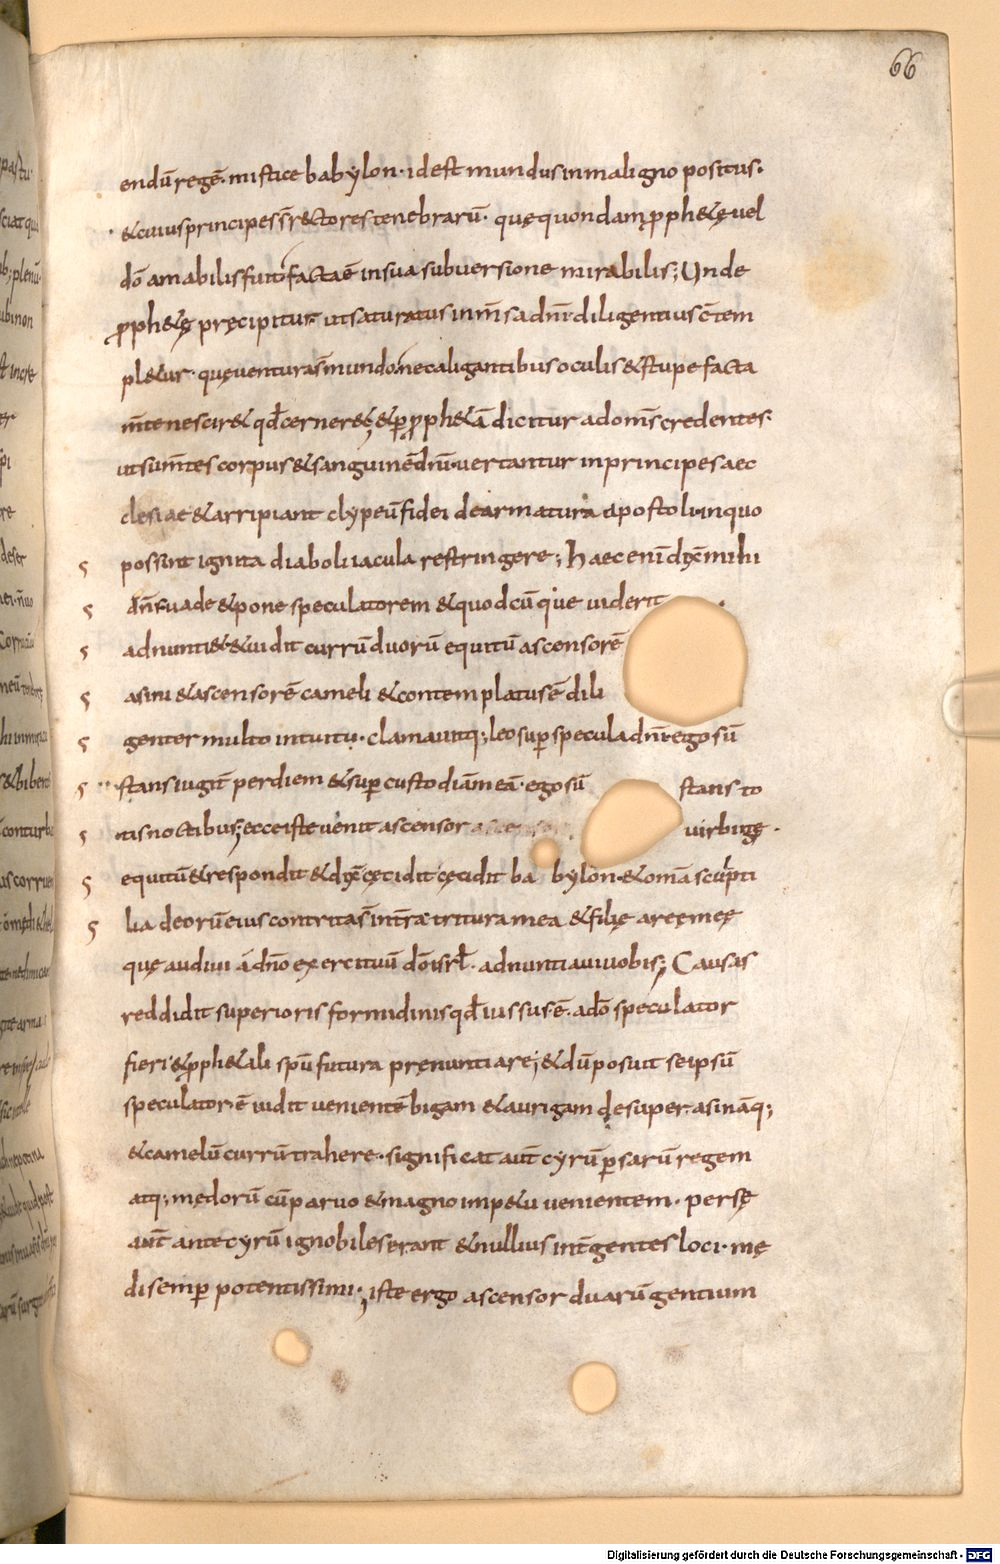 66
endū regē. mistice babylon. id est mundus in maligno positus.
& cuius principes s̄ r&tores tenebrarū. quę quondam p̱ph&ę uel
dō amabilis fuit facta ē in sua subuersione mirabilis; Unde
p̱ph&ę pręcipitur ut saturatus in m̄sa dn̄i diligentius c̄tem
pl&ur. quę uentura s̄ mundo. ne caligantibus oculis & stupefacta
m̄te nescir& qd̄ cerner&; & p̱ p̱ph&ā dicitur ad om̄s credentes.
ut sum̄tes corpus & sanguinē dn̄i. uertantur in principes aec
clesiae & arripiant clypeū fidei de armatura apostoli. in quo
possint ignita diaboli iacula restringere; Haec eni dx̄ mihi
dn̄s uade & pone speculatorem & quodcūque uiderit
adnunti&. & uidit currū duorū equitū ascensorē
asini & ascensorē cameli & contemplatus ē dili
genter multo intuitu. clamauitq; leo sup̱ specula dn̄i ego sū
stans iugit̄ per diem & sup̱ custodiā meā. ego sū stans to
tis noctibus; ecce iste uenit ascensor uir bigę.
equitū & respondit & dx̄ cęcidit cęcidit babylon. & omā sculpti
lia deorū eius contrita s̄ in t̄ra. tritura mea & filię areę meę
quę audiui a dn̄o exercituū dō isrl̄. adnuntiaui uobis; Causas
reddidit superioris formidinis qd̄ iussus ē. a dō speculator
fieri & p̱ph&ali spū futura pręnuntiare; & dū posuit seipsū
speculatorē uidit uenientē bigam & aurigam desuper. asināq;
& camelū currū trahere. significat aut̄ cyrū p̱sarū regem
atq; medorū cū paruo & magno imp&u uenientem. persę
aut̄ ante cyrū ignobiles erant & nullius int̄ gentes loci. mę
di semp̱ potentissimi; iste ergo ascensor duarū gentium
Digitalisierung gefördert durch die Deutsche Forschungsgemeinschaft - DFG